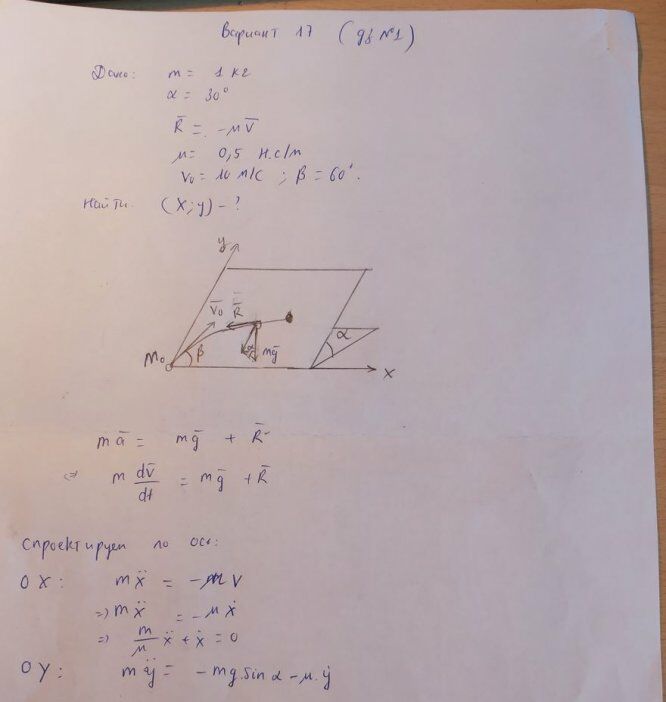 Вариант 17 (дз №1)
Дано: m = 1 кг
α = 30°
R̄ = -μV̄
μ = 0,5 Н.с/м
V₀ = 10 м/с ; β = 60°.
Найти: (x; y) - ?
y
V̄₀ R̄
α
M₀ β α mḡ
x
mā = mḡ + R̄
=> m dv̄/dt = mḡ + R̄
Спроектируем по оси:
OX: mẍ = -μV
=> mẍ = -μẋ
=> m/μ ẍ + ẋ = 0
OY: mÿ = -mg.sinα - μ.ẏ